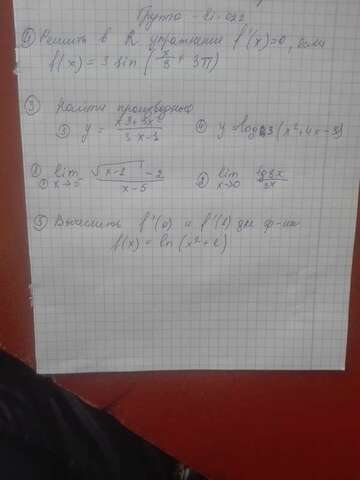 Группа
① Решить в R уравнение f'(x)=0, если
f(x) = 3 sin (x/3 + 3π)
③ Найти производного
③ y = x3+3x2 / 3x-1 ④ y = log0,3 (x²+4x-3)
① lim x→5 √x-1 - 2 / x-5 ② lim x→0 tg3x / 2x
⑤ Вычислить f'(0) и f'(1) для ф-ии
f(x) = ln (x²+e)